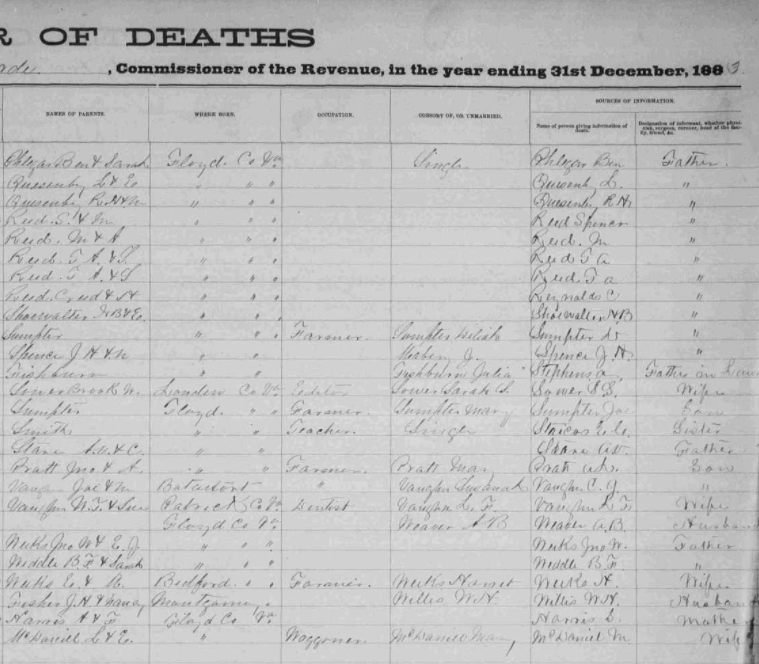 R OF DEATHS
, Commissioner of the Revenue, in the year ending 31st December, 1883.
SOURCES OF INFORMATION.
NAMES OF PARENTS. WHERE BORN. OCCUPATION. CONSORT OF, OR UNMARRIED. Name of person giving information of death. Designation of informant, whether physician, surgeon, coroner, head of the family, friend, &c.
Phlegar Ben & Sarah Floyd Co Va Single Phlegar Ben Father
Quesenby L & E. " " " Quesenby L. "
Quesenby R. H & M " " " Quesenby R. H "
Reed. S. & M " " " Reed Spencer "
Reed. M & A " " " Reed. M "
Reed. T A. & S. " " " Reed T a "
Reed. T A. & S " " " Reed. T a "
Reed. & H " " " Reynolds C "
Showalter H B & E. " " " Showalter H B "
Sumpter " " " Farmer Sumpter Sumpter "
Spence J. H & M " " J. Spence J. H. "
Julia Stephens Father in Law
Sower Brook M. Louden Co Va Editor Sower Sarah S. Sower S S. Wife
Sumpter Floyd " " Farmer Sumpter Mary Sumpter Jac Son
Smith " " Teacher. Single Sister
A. & C. " " Father
Pratt Jno & A. " " Farmer. Pratt Mary Pratt Son
Vaughn Joe & M Botetourt " Vaughn Vaughn. C. Y. "
Vaughn W. T. & Patrick Co Va Dentist Vaughn L. F. Vaughn L F Wife
Floyd Co Va Weaver A B Weaver A. B. Husband
Weeks Jno W & E. J. " " " Weeks Jno W. Father
Weddle B. F & Sarah " " " Weddle B F "
Weeks E. & R. Bedford. " " Farmer. Weeks Weeks A. Wife
J. H. & Nancy Montgomery " Willis W. H. Willis W H. Husband
Harris A & F Floyd Co Va Harris L. Mother
McDaniel L & E. " Waggoner McDaniel Mary McDaniel M Wife